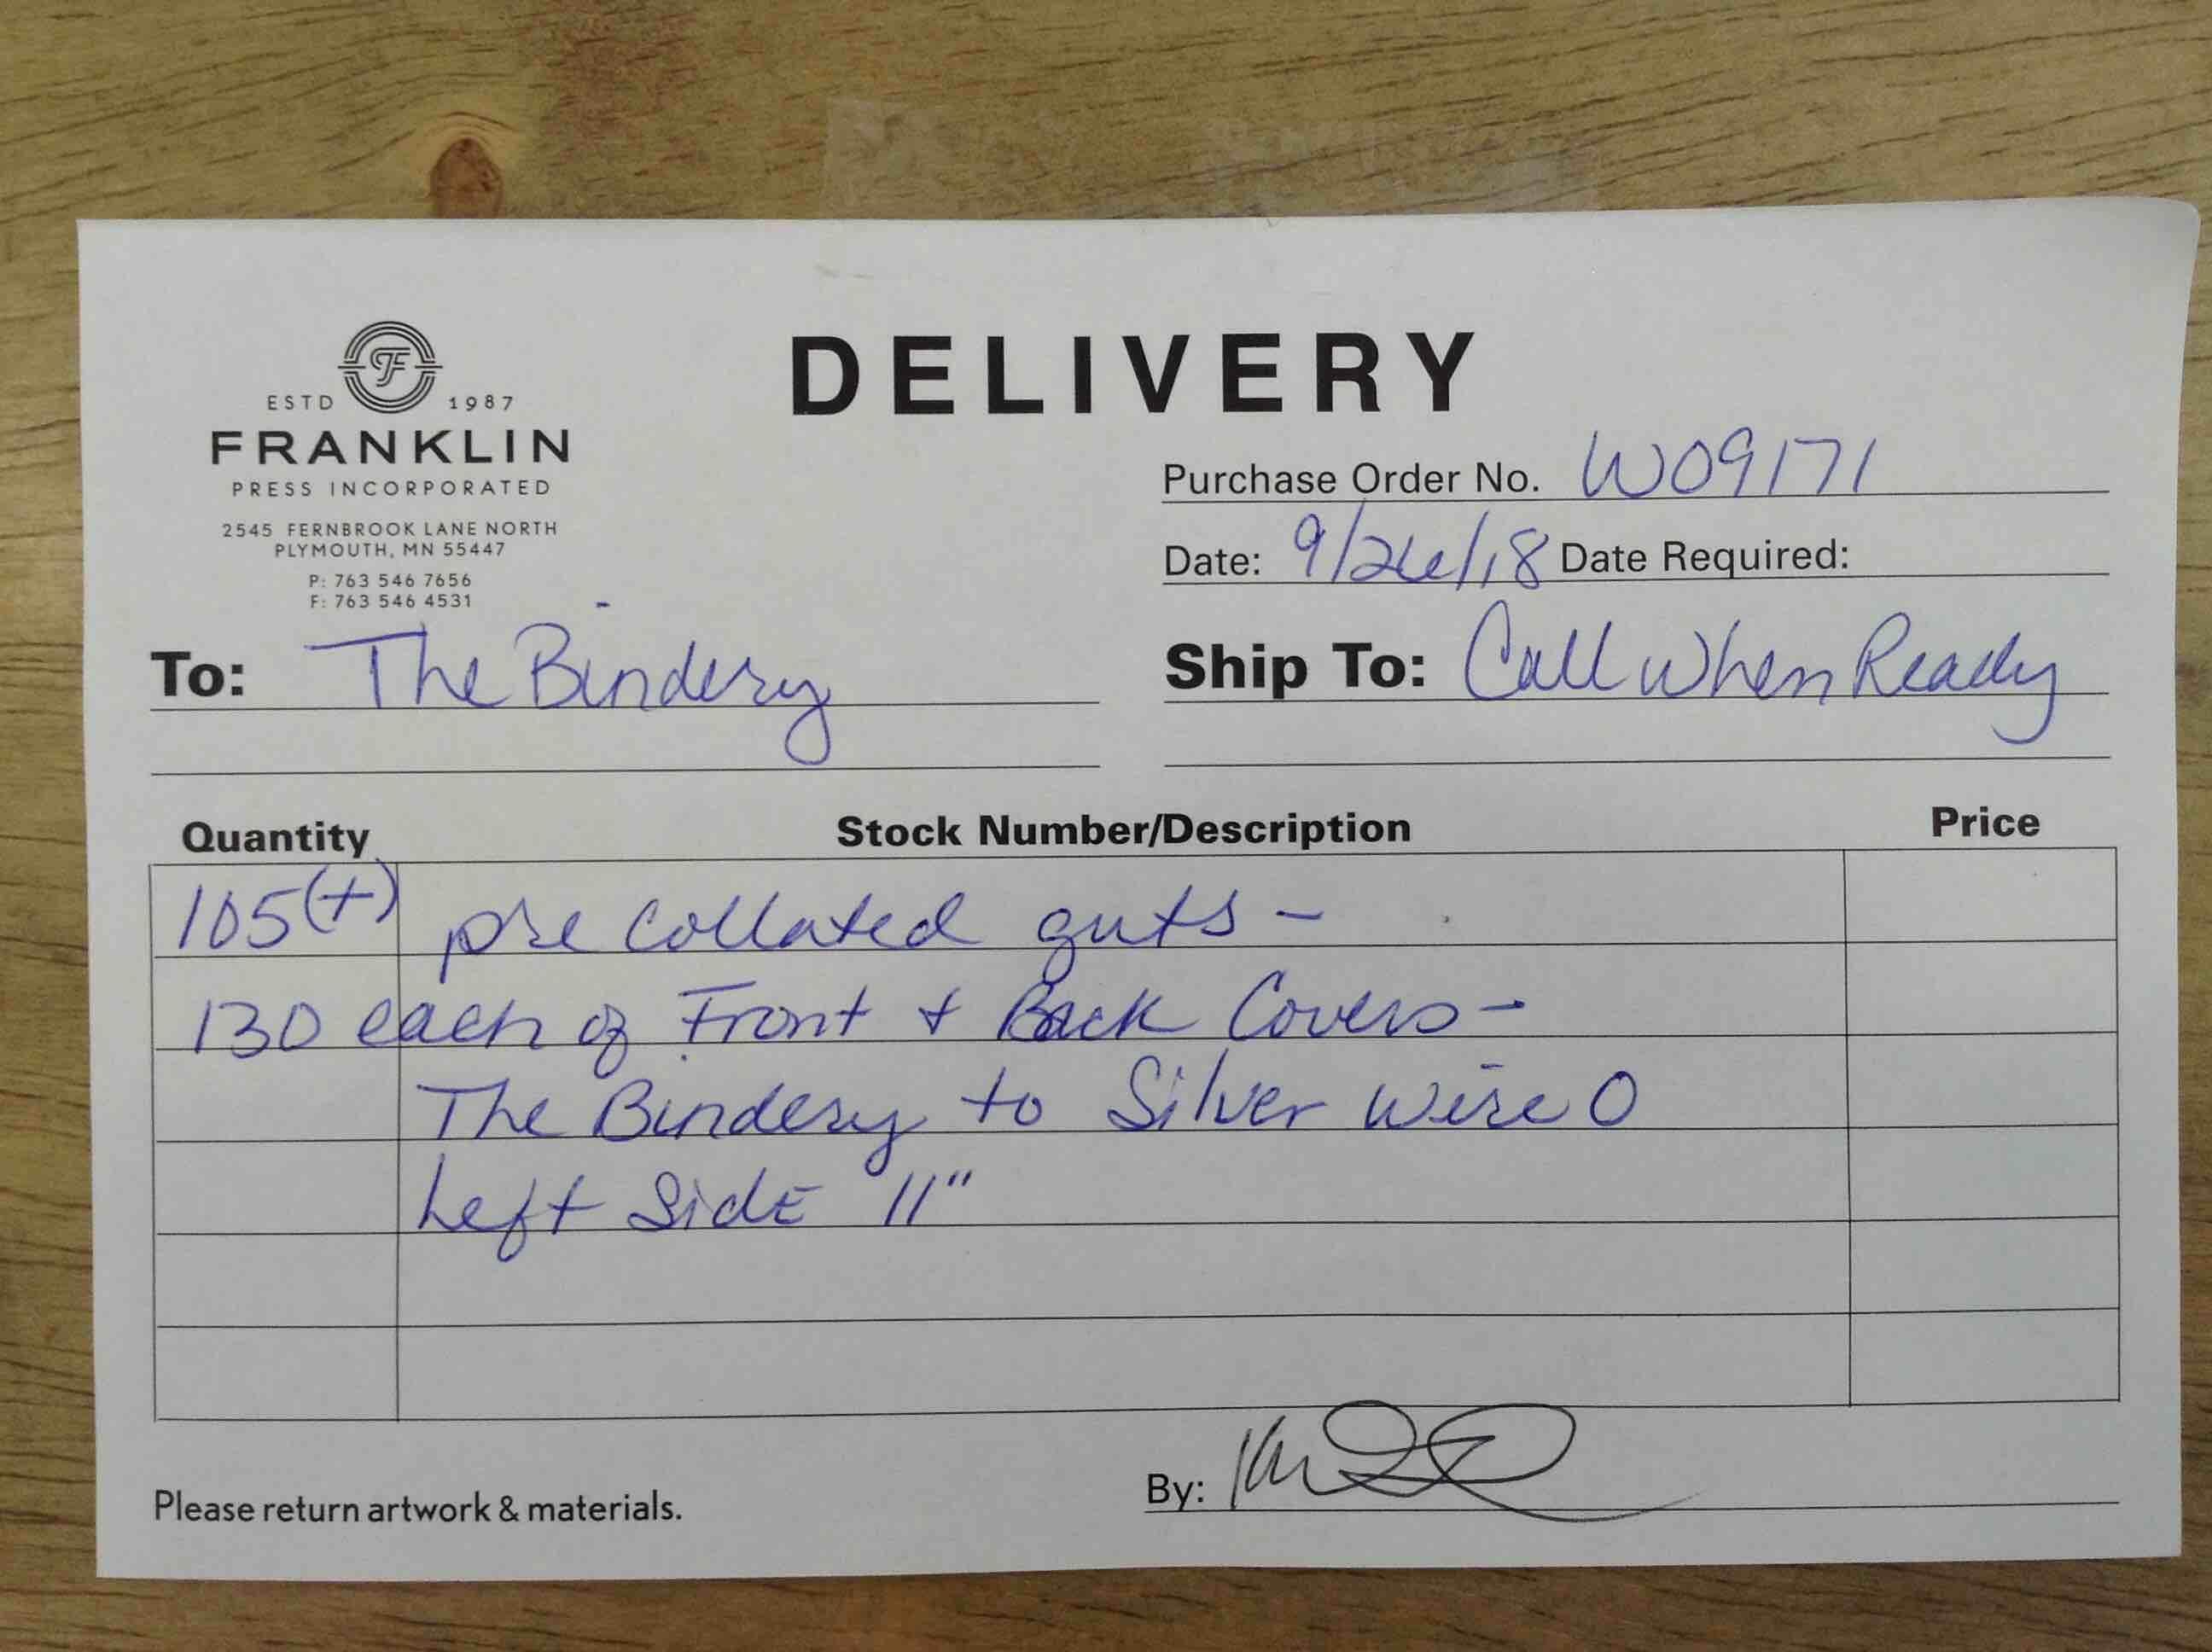 DELIVERY
ESTD 1987
FRANKLIN
PRESS INCORPORATED
2545 FERNBROOK LANE NORTH
PLYMOUTH, MN 55447
P: 763 546 7656
F: 763 546 4531
Purchase Order No. W09171
Date: 9/26/18 Date Required:
To: The Bindery
Ship To: Call When Ready
Quantity Stock Number/Description Price
105(+) pre collated guts -
130 each of Front + Back Covers -
The Bindery to Silver Wire O
Left Side 11"
Please return artwork & materials.
By: